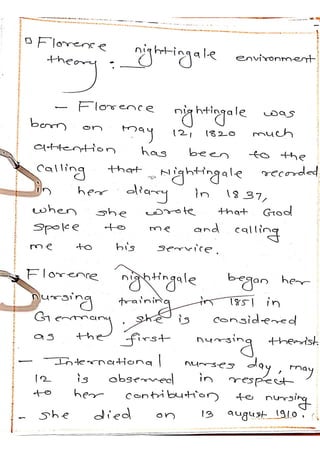 Florence nightingale environment
theory :-
- Florence nightingale was
born on may 12, 1820 much
attention has been to the
calling that Nightingale recorded
in her diary in 1837,
when she wrote that God
spoke to me and calling
me to his service.
Florence nightingale began her
nursing training in 1851 in
Germany. she is considered
as the first nursing therist
- International nurses day, may
12 is observed in respect
to her contribution to nursing
- she died on 13 august 1910.